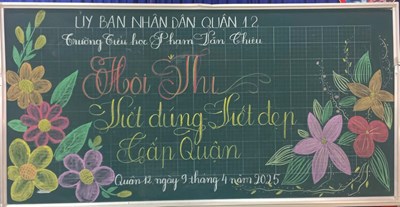 ỦY BAN NHÂN DÂN QUẬN 12
Trường Tiểu học Phạm Văn Chiêu
Hội Thi
Viết đúng Viết đẹp
Cấp Quận
Quận 12, ngày 9 tháng 4 năm 2025